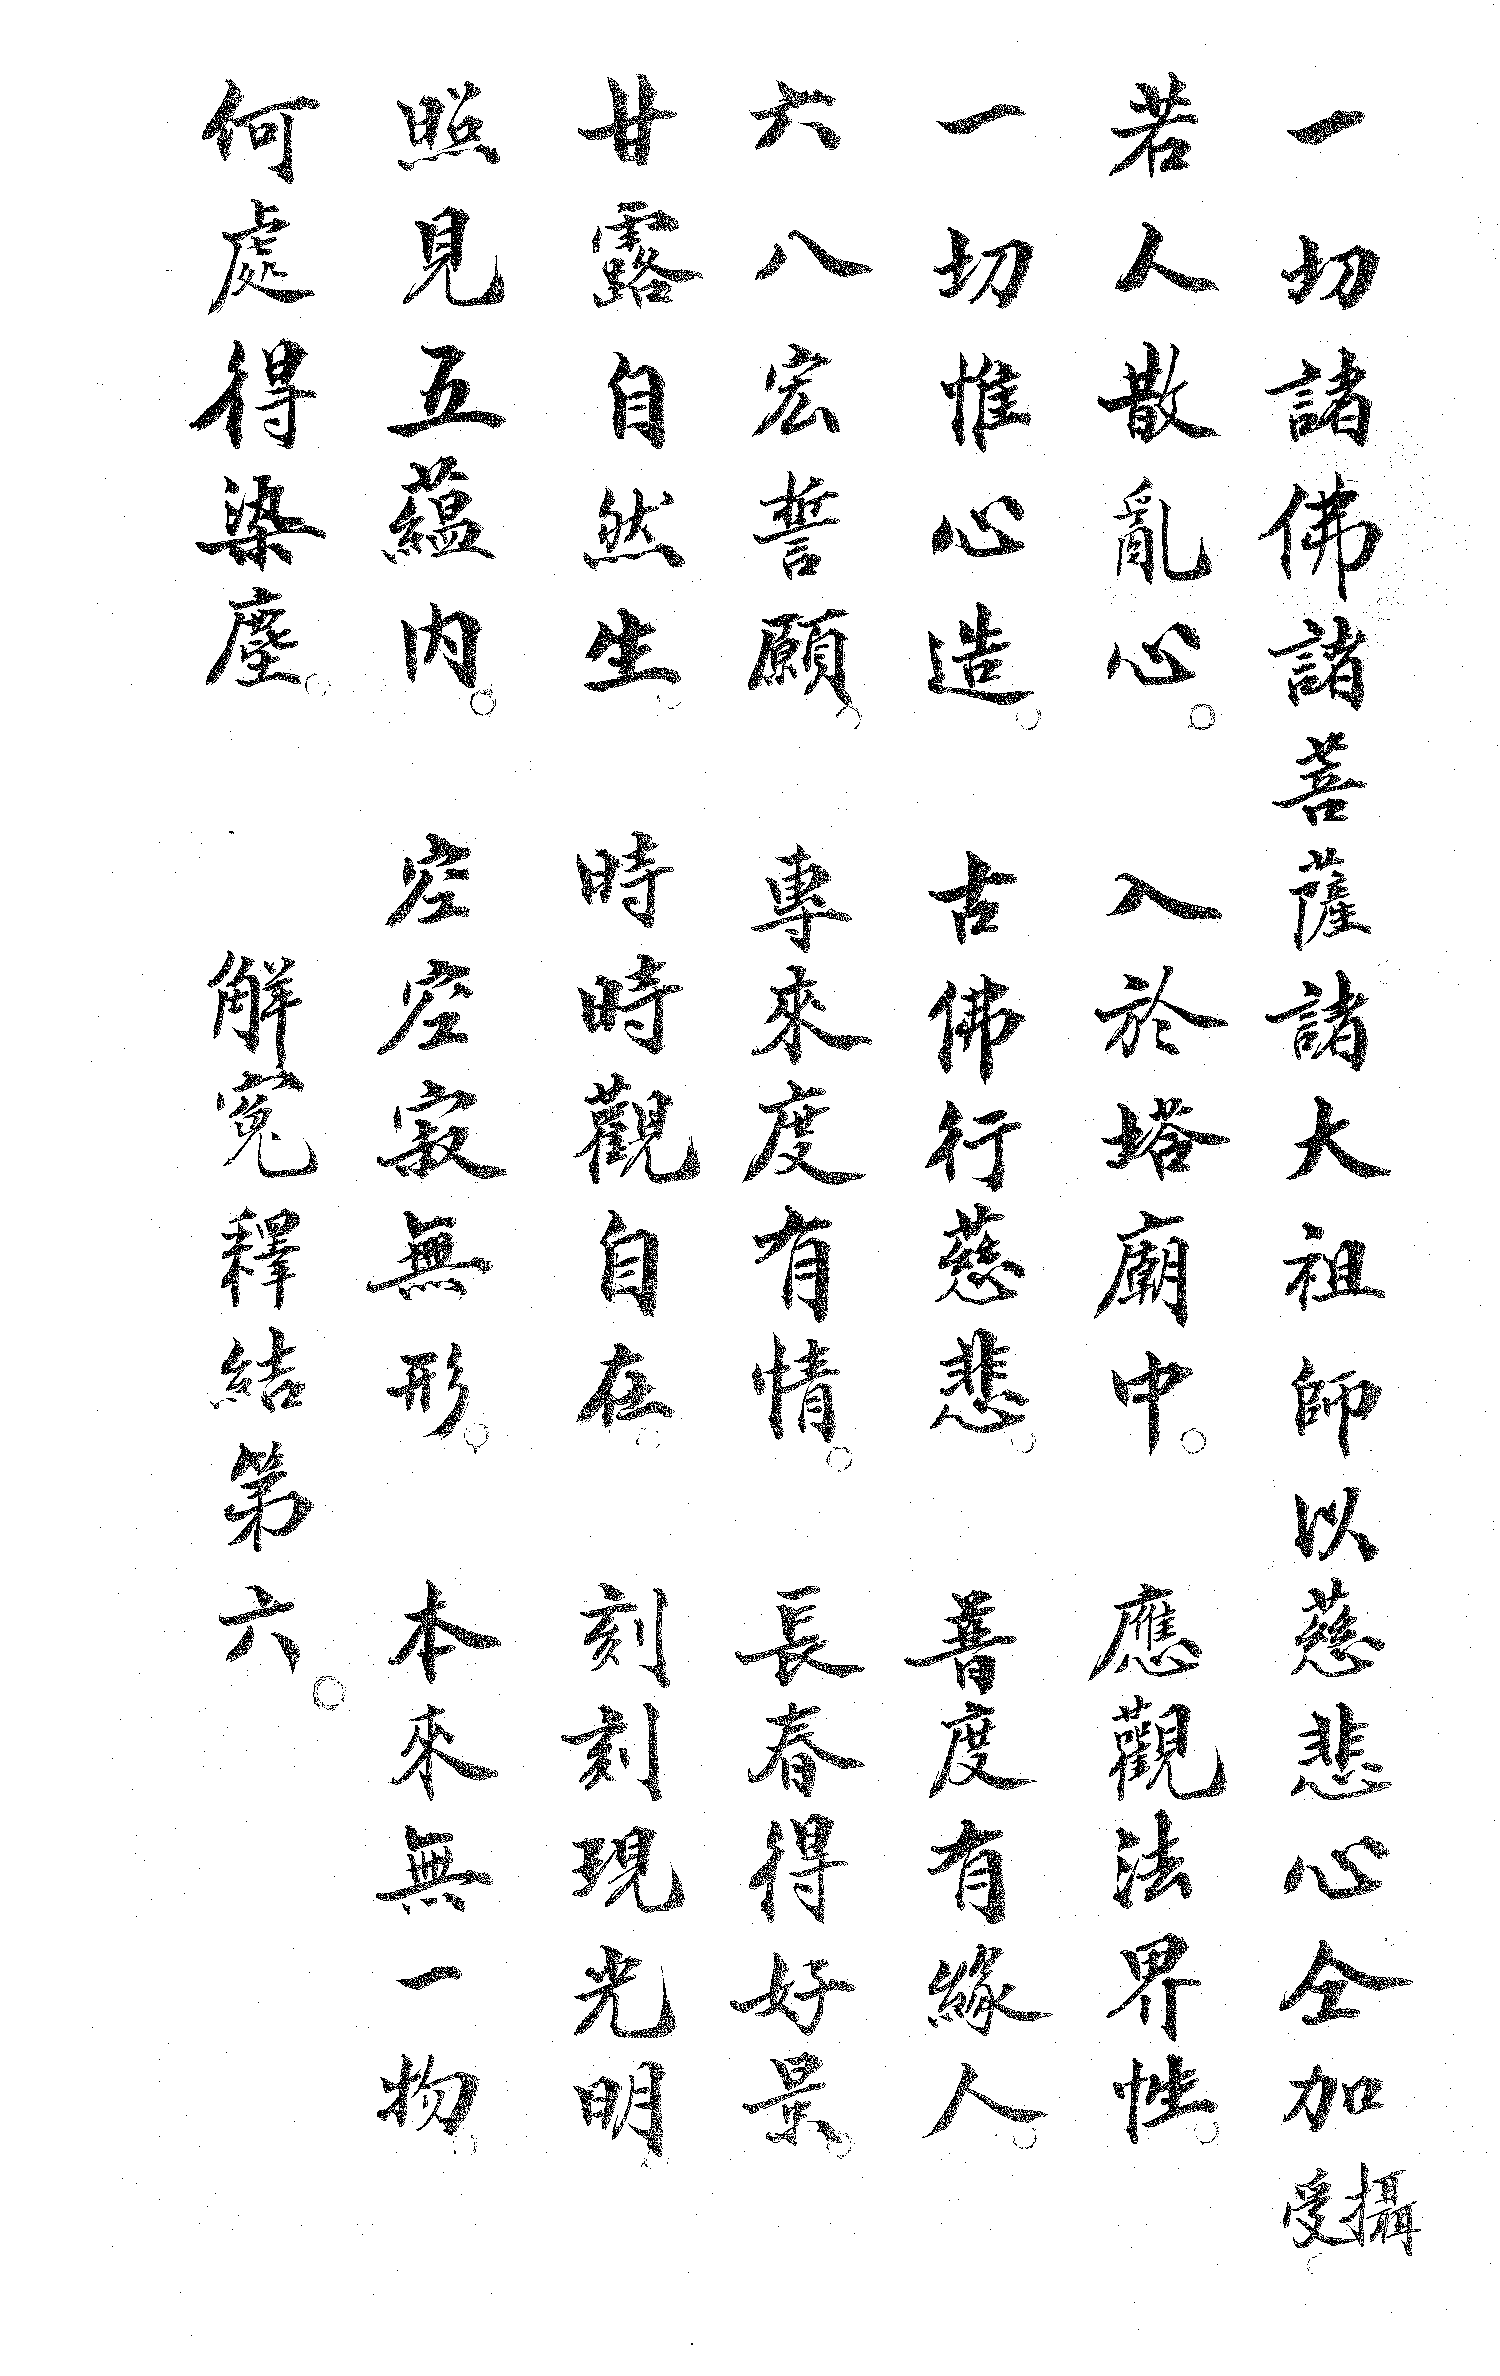 一切諸佛諸菩薩諸大祖師以慈悲心仝加攝受。
若人散亂心。　入於塔廟中。　應觀法界性。
一切惟心造。　古佛行慈悲。　善度有緣人。
六八宏誓願。　專來度有情。　長春得好景。
甘露自然生。　時時觀自在。　刻刻現光明。
照見五蘊內。　空空寂無形。　本來無一物。
何處得染塵。　解寃釋結第六。